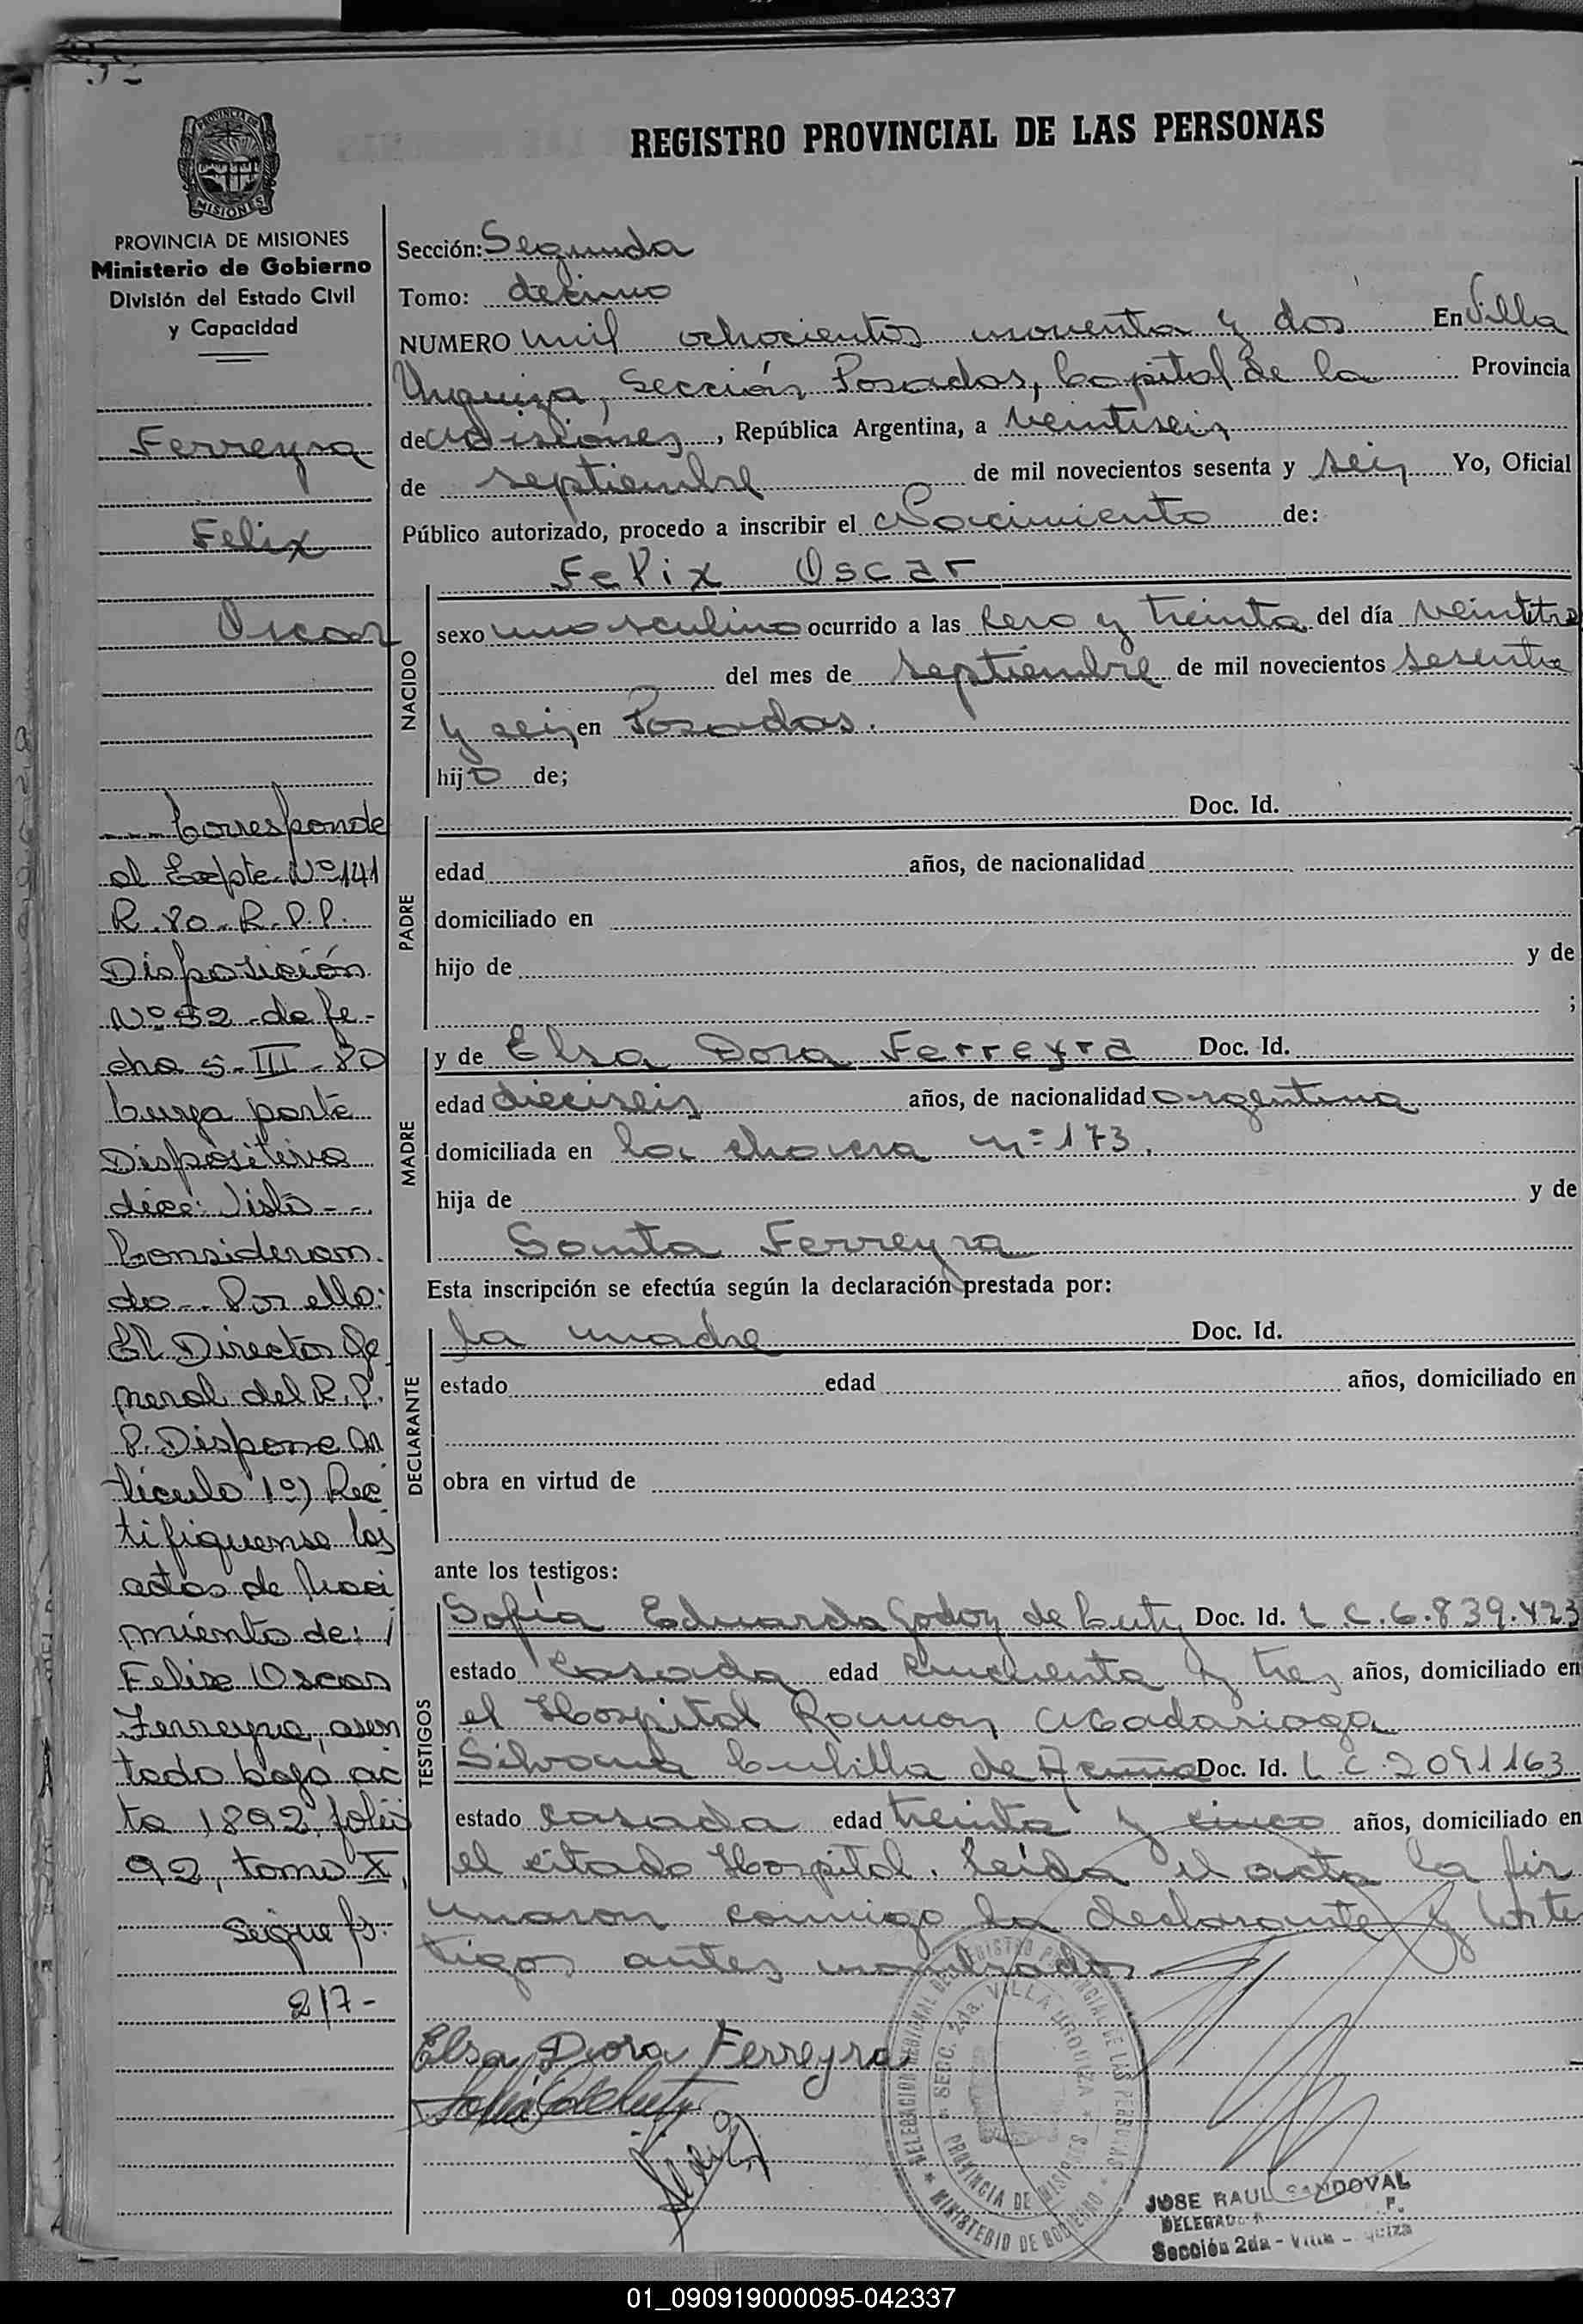 REGISTRO PROVINCIAL DE LAS PERSONAS
PROVINCIA DE
MISIONES
PROVINCIA DE MISIONES
Ministerio de Gobierno
División del Estado Civil
y Capacidad
Ferreyra
Felix
Oscar
--- Corresponde
al Expte Nº 141
R. 80 - R.P.P.
Disposición
Nº 52 - de fe-
cha 5-III-80
Cuya parte
Dispositiva
dice: Visto --
Consideran-
do -- Por ello:
El Director Ge
neral del R.P.
P. Dispone Ar
tículo 1º) Rec
tifiquense las
actas de Naci
miento de: /
Felix Oscar
Ferreyra, asen
tado bajo ac
ta 1892, folio
92, tomo X,
Sigue fs.
217-
Sección: Segunda
Tomo: decimo
NUMERO mil ochocientos noventa y dos En Villa
Urquiza, Sección Posadas, Capital de la Provincia
de Misiones, República Argentina, a veintiseis
de septiembre de mil novecientos sesenta y seis Yo, Oficial
Público autorizado, procedo a inscribir el Nacimiento de:
NACIDO
Felix Oscar
sexo masculino ocurrido a las cero y treinta del día veintitres
del mes de septiembre de mil novecientos sesenta
y seis en Posadas.
hijo de;
PADRE
Doc. Id.
edad años, de nacionalidad
domiciliado en
hijo de y de
;
MADRE
y de Elsa Dora Ferreyra Doc. Id.
edad dieciseis años, de nacionalidad argentina
domiciliada en la chacra nº 173.
hija de y de
Santa Ferreyra
Esta inscripción se efectúa según la declaración prestada por:
DECLARANTE
la madre Doc. Id.
estado edad años, domiciliado en
obra en virtud de
ante los testigos:
TESTIGOS
Sofía Eduarda Godoy de Doc. Id. L.C. 6.839.423
estado casada edad cincuenta y tres años, domiciliado en
el Hospital Ramon Madariaga
Silvana de Acuña Doc. Id. L.C. 2091163
estado casada edad treinta y cinco años, domiciliado en
el citado Hospital. Leída el acta la fir
maron conmigo la declarante y los tes
tigos antes nombrados
Elsa Dora Ferreyra
DELEGACION REGIONAL DEL REGISTRO PROVINCIAL DE LAS PERSONAS
SECC. 2da. VILLA URQUIZA
PROVINCIA DE MISIONES
MINISTERIO DE GOBIERNO
JOSE RAUL SANDOVAL
Sección 2da - Villa Urquiza
01_090919000095-042337